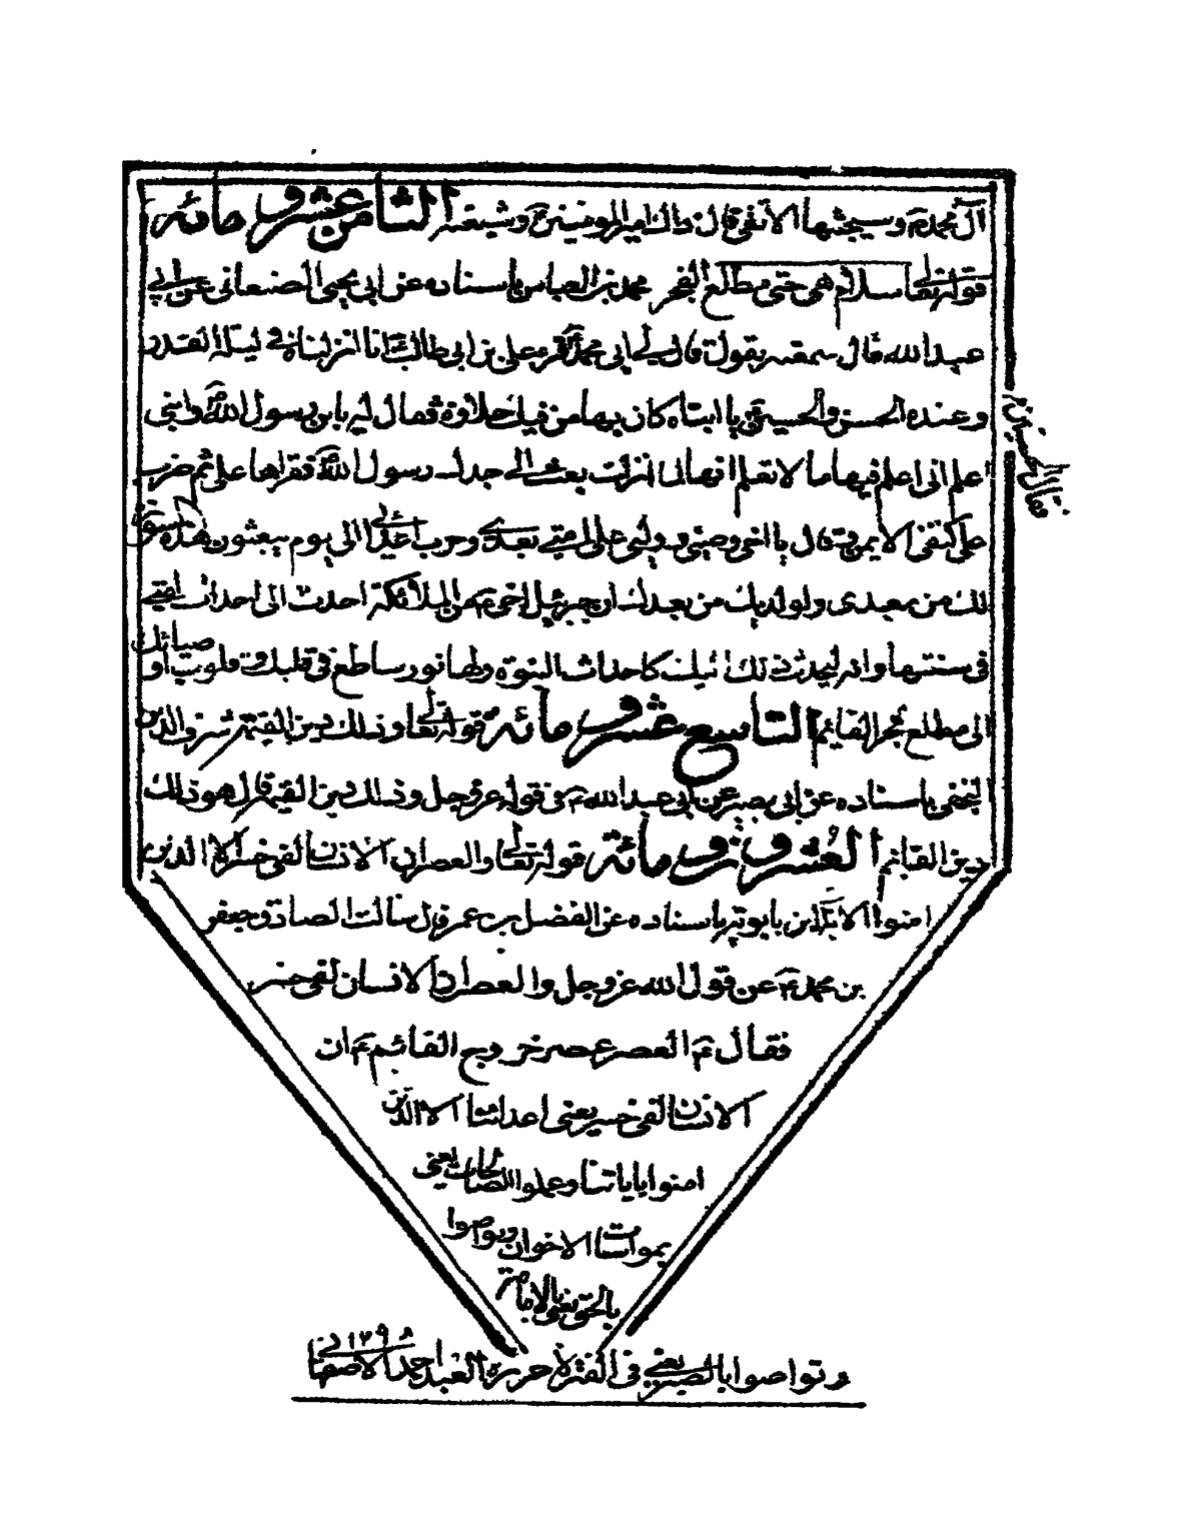 آل محمد ع وسيجنبها الاتقى قال ذاك امير المومنين ع وشيعته الثامن عشر و مائة
قوله تعالى سلام هى حتى مطلع الفجر محمد بن العباس باسناده عن ابي يحيى الصنعانى عن ابي
عبد الله قال سمعته يقول قال لي ابي محمد قرء على بن ابى طالب ع انا انزلناه في ليلة القدر
وعنده الحسن والحسين ع يا ابتاه كان بها من فيك حلاوة فقال له يا بن رسول الله ص وابنى
فقال الحسين ع
اعلم انى اعلم فيها ما لا تعلم انها لما انزلت بعث الي جدك رسول الله ص فقراها على ثم ضرب
على كتفى الايمن وقال يا اخى و وصيى و وليى على امتى بعدى وحرب اعدائى الى يوم يبعثون هذه السورة
لك من بعدى ولولديك من بعدك ان جبرئيل اخى من الملائكة احدث الى احداث امتى
فى سنتها وانه ليحدث ذلك اليك كاحداث النبوة ولها نور ساطع فى قلبك و قلوب اوصيائك
الى مطلع فجر القايم التاسع عشر و مائة قوله تعالى وذلك دين القيمة شرف الدين
النجفى باسناده عن ابى بصير عن ابى عبد الله ع فى قوله عز وجل وذلك دين القيمة قال هو ذلك
دين القائم العشرون و مائة قوله تعالى والعصر ان الانسان لفى خسر الا الذين
امنوا الاية ابن بابويه باسناده عن المفضل بن عمر قال سالت الصادق جعفر
بن محمد ع عن قول الله عز وجل والعصر ان الانسان لفى خسر
فقال ع العصر عصر خروج القائم ع ان
الانسان لفى خسر يعنى اعدائنا الا الذين
امنوا باياتنا وعملوا الصالحات يعنى
بمواسات الاخوان وتواصوا
بالحق يعنى بالامامة
وتواصوا بالصبر يعنى فى الفترة حرره العبد احمد الاصفهانى